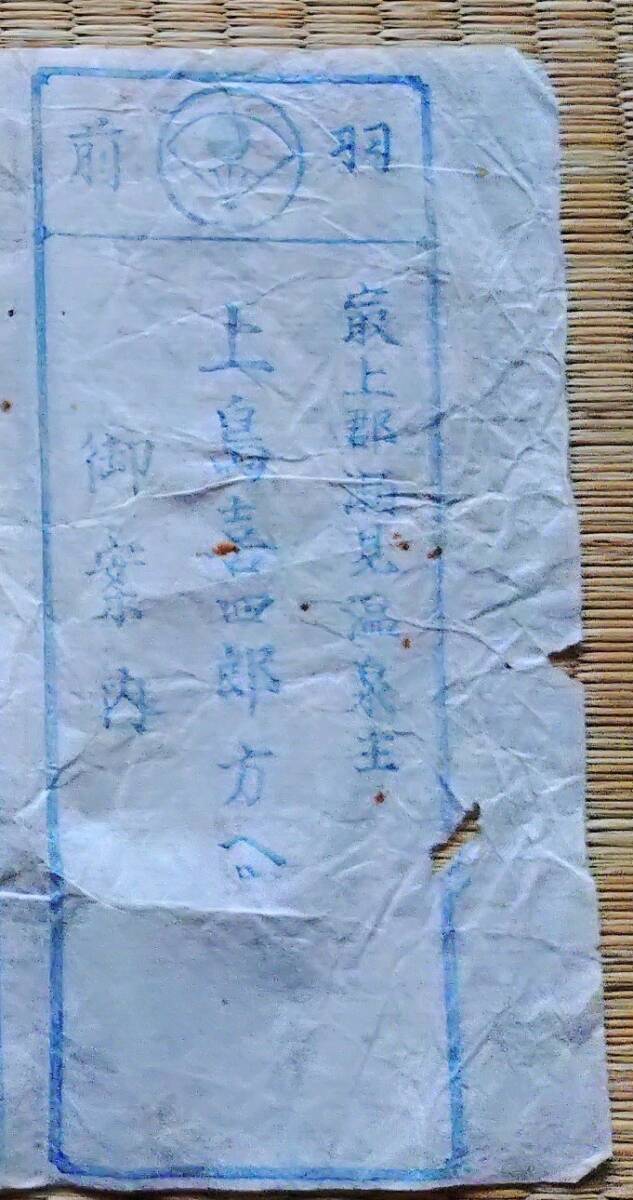 羽前
最上郡瀬見温泉主
上島喜四郎方へ
御案内